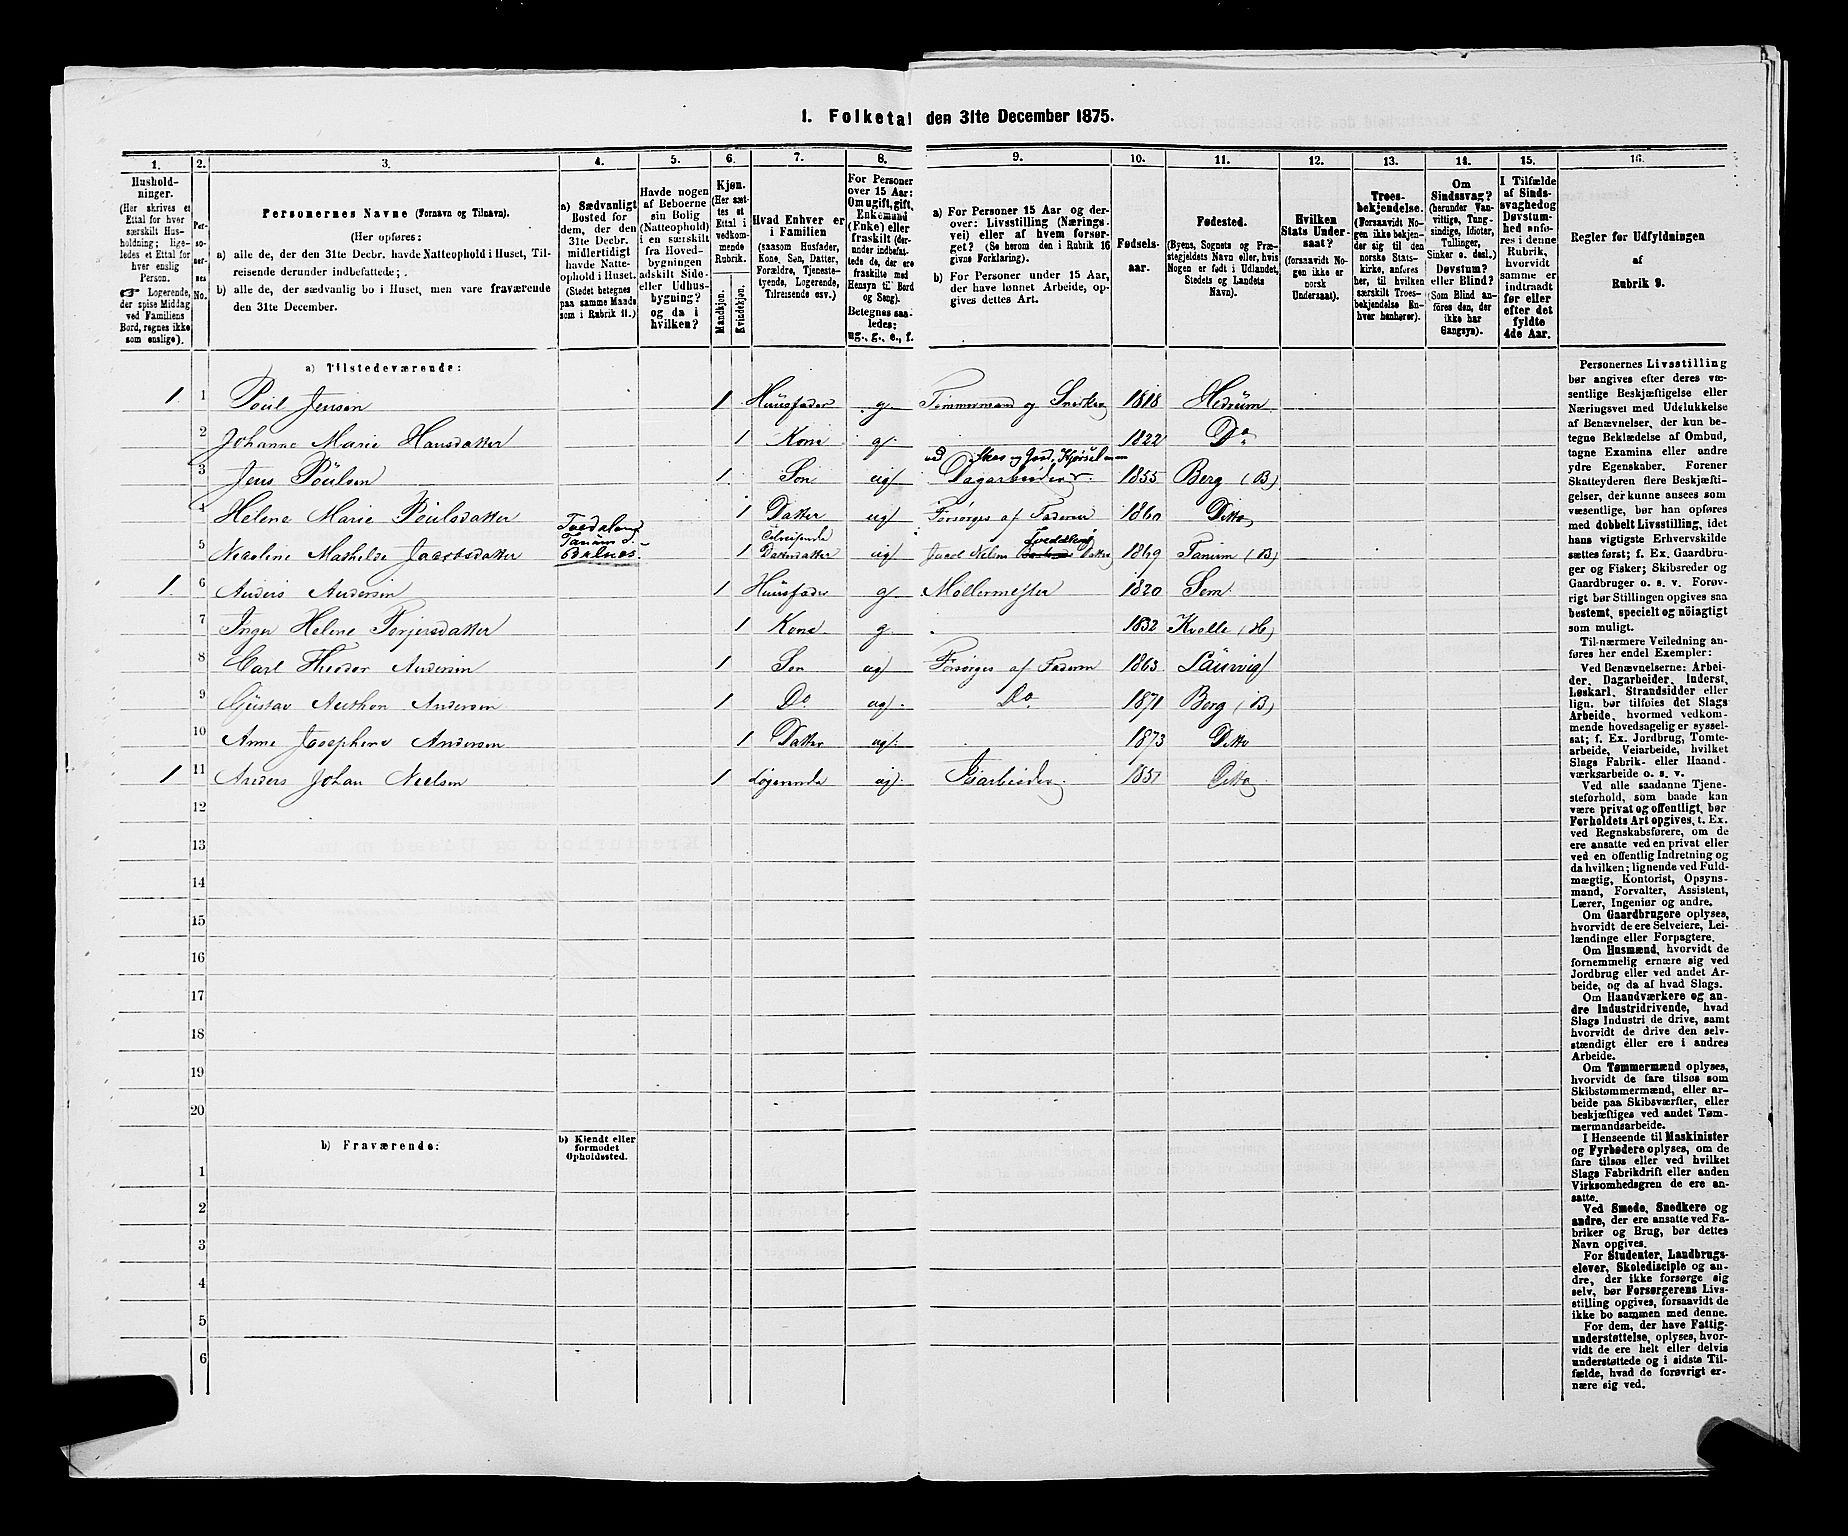 1. Folketal den 31te December 1875.
1. 2. 3. 4. 5. 6. 7. 8. 9. 10. 11. 12. 13. 14. 15. 16.
Hushold-
ninger.
(Her skrives et
Ettal for hver
særskilt Hus-
holdning; lige-
ledes et Ettal for
hver enslig
Person.
☞ Logerende,
der spise Middag
ved Familiens
Bord, regnes ikke
som enslige).
Per-
so-
ner-
nes
No.
Personernes Navne (Fornavn og Tilnavn).
(Her opføres:
a) alle de, der den 31te Decbr. havde Natteophold i Huset, Til-
reisende derunder indbefattede;
b) alle de, der sædvanlig bo i Huset, men vare fraværende
den 31te December.
a) Sædvanligt
Bosted for
dem, der den
31te Decbr.
midlertidigt
havde Natte-
ophold i Huset.
(Stedet betegnes
paa samme Maade
som i Rubrik 11.)
Havde nogen
af Beboerne
sin Bolig
(Natteophold)
i en særskilt
fra Hoved-
bygningen
adskilt Side-
eller Udhus-
bygning?
og da i
hvilken?
Kjøn.
(Her sæt-
tes et
Ettal i
vedkom-
mende
Rubrik.
Mandkjøn.
Kvindekjøn.
Hvad Enhver er
i Familien
(saasom Husfader,
Kone, Søn, Datter,
Forældre, Tjeneste-
tyende, Logerende,
Tilreisende osv.)
For Personer
over 15 Aar:
Om ugift, gift,
Enkemand
(Enke) eller
fraskilt (der-
under indbefat-
tede de, der ere
fraskilte med
Hensyn til Bord
og Seng).
Betegnes saa-
ledes:
ug., g., e., f.
a) For Personer 15 Aar og der-
over: Livsstilling (Nærings-
vei) eller af hvem forsør-
get? (Se herom den i Rubrik 16
givne Forklaring).
b) For Personer under 15 Aar,
der have lønnet Arbeide, op-
gives dettes Art.
Fødsels-
aar.
Fødested.
(Byens, Sognets og Præ-
stegjeldets Navn eller, hvis
Nogen er født i Udlandet,
Stedets og Landets
Navn).
Hvilken
Stats Under-
saat?
(foraavidt No-
gen ikke er
norsk
Undersaat).
Troes-
bekjendelse.
(Foraavidt No-
gen ikke bekjen-
der sig til den
norske Stats-
kirke, anføres
her, til hvilken
særskilt Troes-
bekjendelse En-
hver henhører).
Om
Sindssvag?
(herunder Van-
vittige, Tung-
sindige, Idioter,
Tullinger,
Sinker o. desl.)
Døvstum?
eller Blind?
(Som Blind an-
føres den, der
ikke har
Gangsyn).
I Tilfælde
af Sinds-
svaghed og
Døvstum-
hed anfø-
res i denne
Rubrik,
hvorvidt
samme er
indtraadt
før eller
efter det
fyldte
4de Aar.
Regler for Udfyldningen
af
Rubrik 9.
a) Tilstedeværende:
1 1 Poul Jensen 1 Huusfader g. Tømmermand og Snedker 1818 Hedrum
2 Johanne Marie Hansdatter 1 Kone g. 1822 Do
ved Skov og Jord, Kjørsel
3 Jens Poulsen 1 Søn ug Dagarbeider 1855 Berg (B)
4 Helene Marie Poulsdatter 1 Datter ug Forsørges af Faderen 1860 Ditto
5 Mathilde Jacobsdatter Tvedalene Tanum S. tilreisende 1 Datterdatter ug Datter 1869 Tanum (B)
1 6 Anders Andersen 1 Huusfader g Møllermester 1820 Sem
7 Inger Helene Torjersdatter 1 Kone g. 1832 Kvelle (H)
8 Carl Theodor Andersen 1 Søn ug Forsørges af Faderen 1863 Laurvig
9 Gustav Anthon Andersen 1 Do ug. Do 1871 Berg (B)
10 Anne Josephine Andersen 1 Datter ug. 1873 Ditto
1 11 Anders Johan Nielsen 1 Logerende ug. Isarbeider 1851 Ditto
12
13
14
15
16
17
18
19
20
b) Fraværende:
b) Kjendt eller
formodet
Opholdssted.
1
2
3
4
5
6
Personernes Livsstilling
bør angives efter deres væ-
sentlige Beskjæftigelse eller
Næringsvei med Udelukkelse
af Benævnelser, der kun be-
tegne Beklædelse af Ombud,
tagne Examina eller andre
ydre Egenskaber. Forener
Skatteyderen flere Beskjæfti-
gelser, der kunne ansees som
væsentlige, bør han opføres
med dobbelt Livsstilling, idet
hans vigtigste Erhvervskilde
sættes først; f. Ex. Gaardbru-
ger og Fisker; Skibsreder og
Gaardbruger o. s. v. Forøv-
rigt bør Stillingen opgives saa
bestemt, specielt og nøiagtigt
som muligt.
Til nærmere Veiledning an-
føres her endel Exempler:
Ved Benævnelserne: Arbei-
der, Dagarbeider, Inderst,
Løskarl, Strandsidder eller
lign. bør tilføies det Slags
Arbeide, hvormed vedkom-
mende hovedsagelig er syssel-
sat; f. Ex. Jordbrug, Tomte-
arbeide, Veiarbeide, hvilket
Slags Fabrik- eller Haand-
værksarbeide o. s. v.
Ved alle saadanne Tjene-
steforhold, som baade kan
være privat og offentligt, bør
Forholdets Art opgives, t. Ex.
ved Regnskabsførere, om de
ere ansatte ved en privat eller
ved en offentlig Indretning og
da hvilken; lignende ved Fuld-
mægtig, Kontorist, Opsyns-
mand, Forvalter, Assistent,
Lærer, Ingeniør og andre.
Om Gaardbrugere oplyses,
hvorvidt de ere Selveiere, Lei-
lændinge eller Forpagtere.
Om Husmænd, hvorvidt de
fornemmelig ernære sig ved
Jordbrug eller ved andet Ar-
beide, og da af hvad Slags.
Om Haandværkere og an-
dre Industridrivende, hvad
Slags Industri de drive, samt
hvorvidt de drive den selv-
stændigt eller ere i andres
Arbeide.
Om Tømmermænd oplyses,
hvorvidt de fare tilsøs som
Skibstømmermænd, eller ar-
beide paa Skibsværfter, eller
beskjæftiges ved andet Tøm-
mermandsarbeide.
I Henseende til Maskinister
og Fyrbødere oplyses, om de
fare tilsøs eller ved hvilket
Slags Fabrikdrift eller anden
Virksomhedsgren de ere an-
satte.
Ved Smede, Snedkere og
andre, der ere ansatte ved Fa-
briker og Brug, bør dettes
Navn opgives.
For Studenter, Landbrugs-
elever, Skoledisciple og an-
dre, der ikke forsørge sig
selv, bør Forsørgerens Livs-
stilling opgives, forsaavidt de
ikke bo sammen med denne.
For dem, der have Fattig-
understøttelse, oplyses, hvor-
vidt de ere helt eller delvis
understøttede og i sidste Til-
fælde, hvad de forøvrigt er-
nære sig ved.